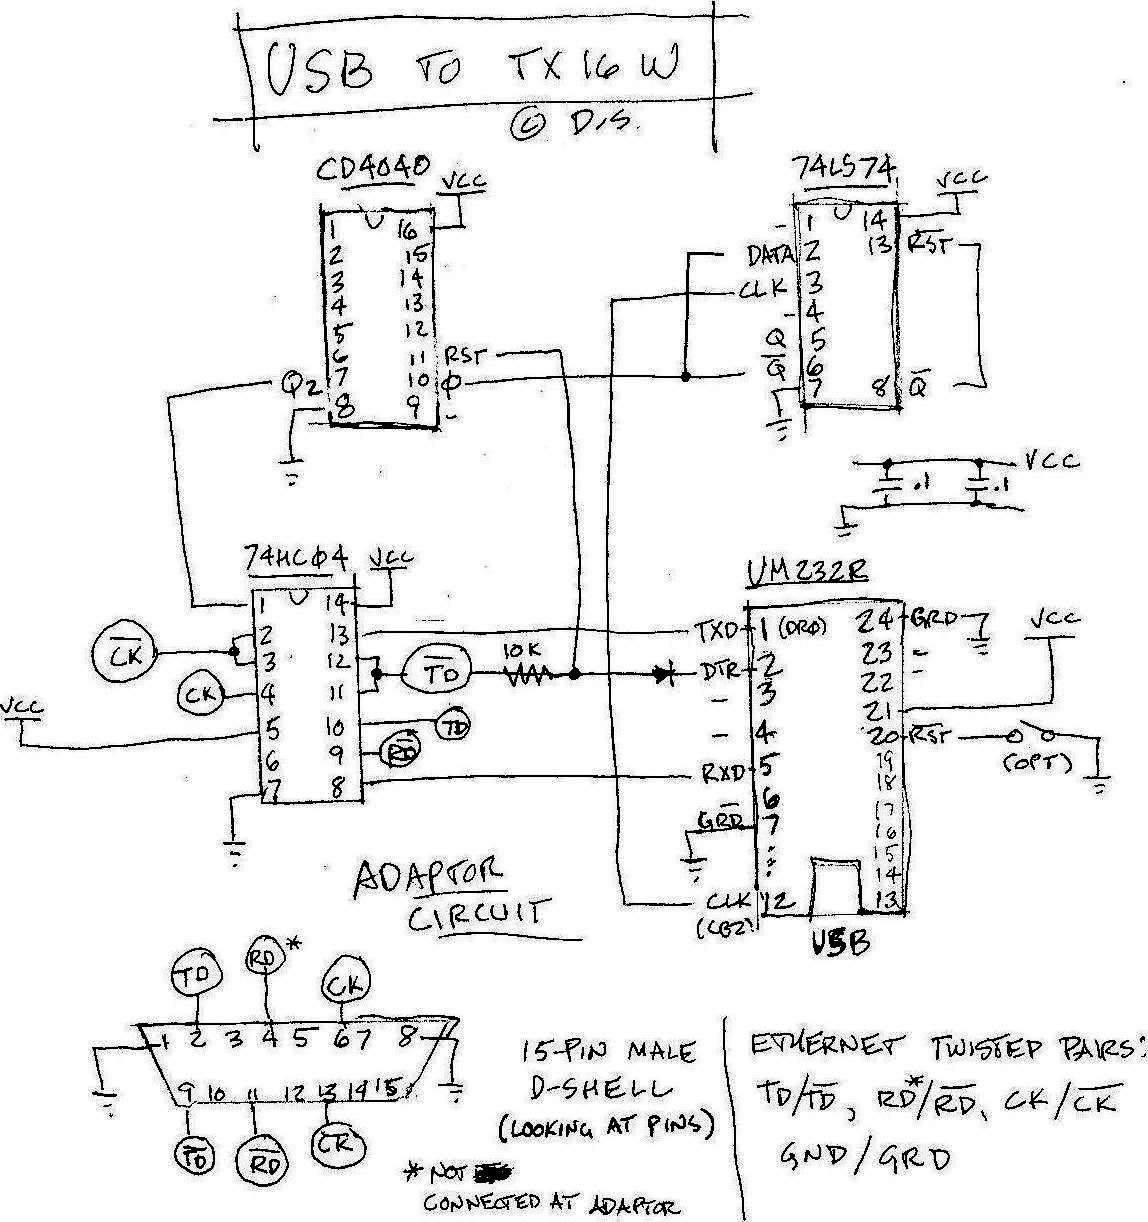 USB TO TX16W
© D.S.
CD4040
VCC
1 16
2 15
3 14
4 13
5 12
6 11 RST
Q2 7 10 Φ
8 9 -
74LS74
VCC
- 1 14
DATA 2 13 R̅S̅T̅
CLK 3
- 4
Q 5
Q̅ 6
7 8 Q̅
VCC
.1 .1
74HCØ4
VCC
1 14
2 13
C̅K̅ 3 12 T̅D̅ 10K
CK 4 11
VCC
5 10 TD
6 9 R̅D̅*
7 8
UM232R
TXD 1 (DRO) 24 GRD
VCC
DTR 2 23 -
- 3 22 -
- 4 21
20 R̅S̅T̅
(OPT)
RXD 5 19
6 18
GRD 7 17
16
15
14
CLK 12 13
(CB2)
USB
ADAPTOR
CIRCUIT
TD RD* CK
1 2 3 4 5 6 7 8
9 10 11 12 13 14 15
T̅D̅ R̅D̅ C̅K̅
15-PIN MALE
D-SHELL
(LOOKING AT PINS)
* NOT
CONNECTED AT ADAPTOR
ETHERNET TWISTED PAIRS:
TD/T̅D̅, RD*/R̅D̅, CK/C̅K̅
GND/GRD